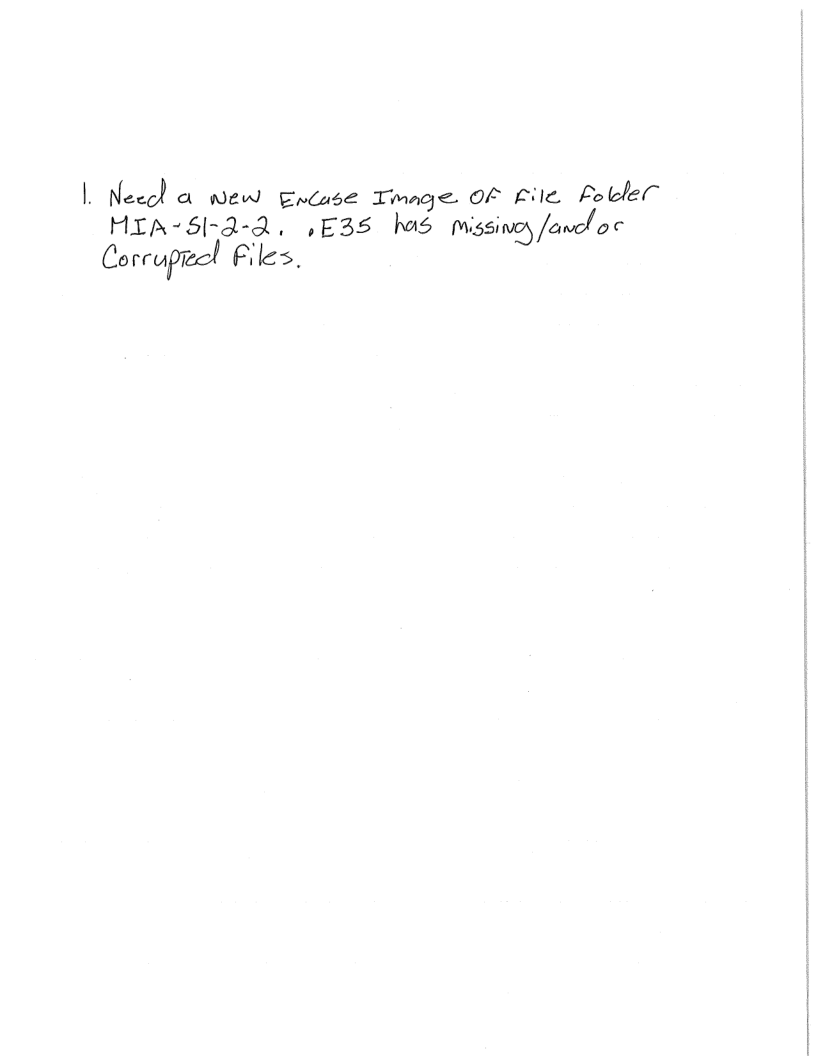 1. Need a New EnCase Image OF File Folder
MIA-S1-2-2. .E35 has missing/and or
Corrupted Files.